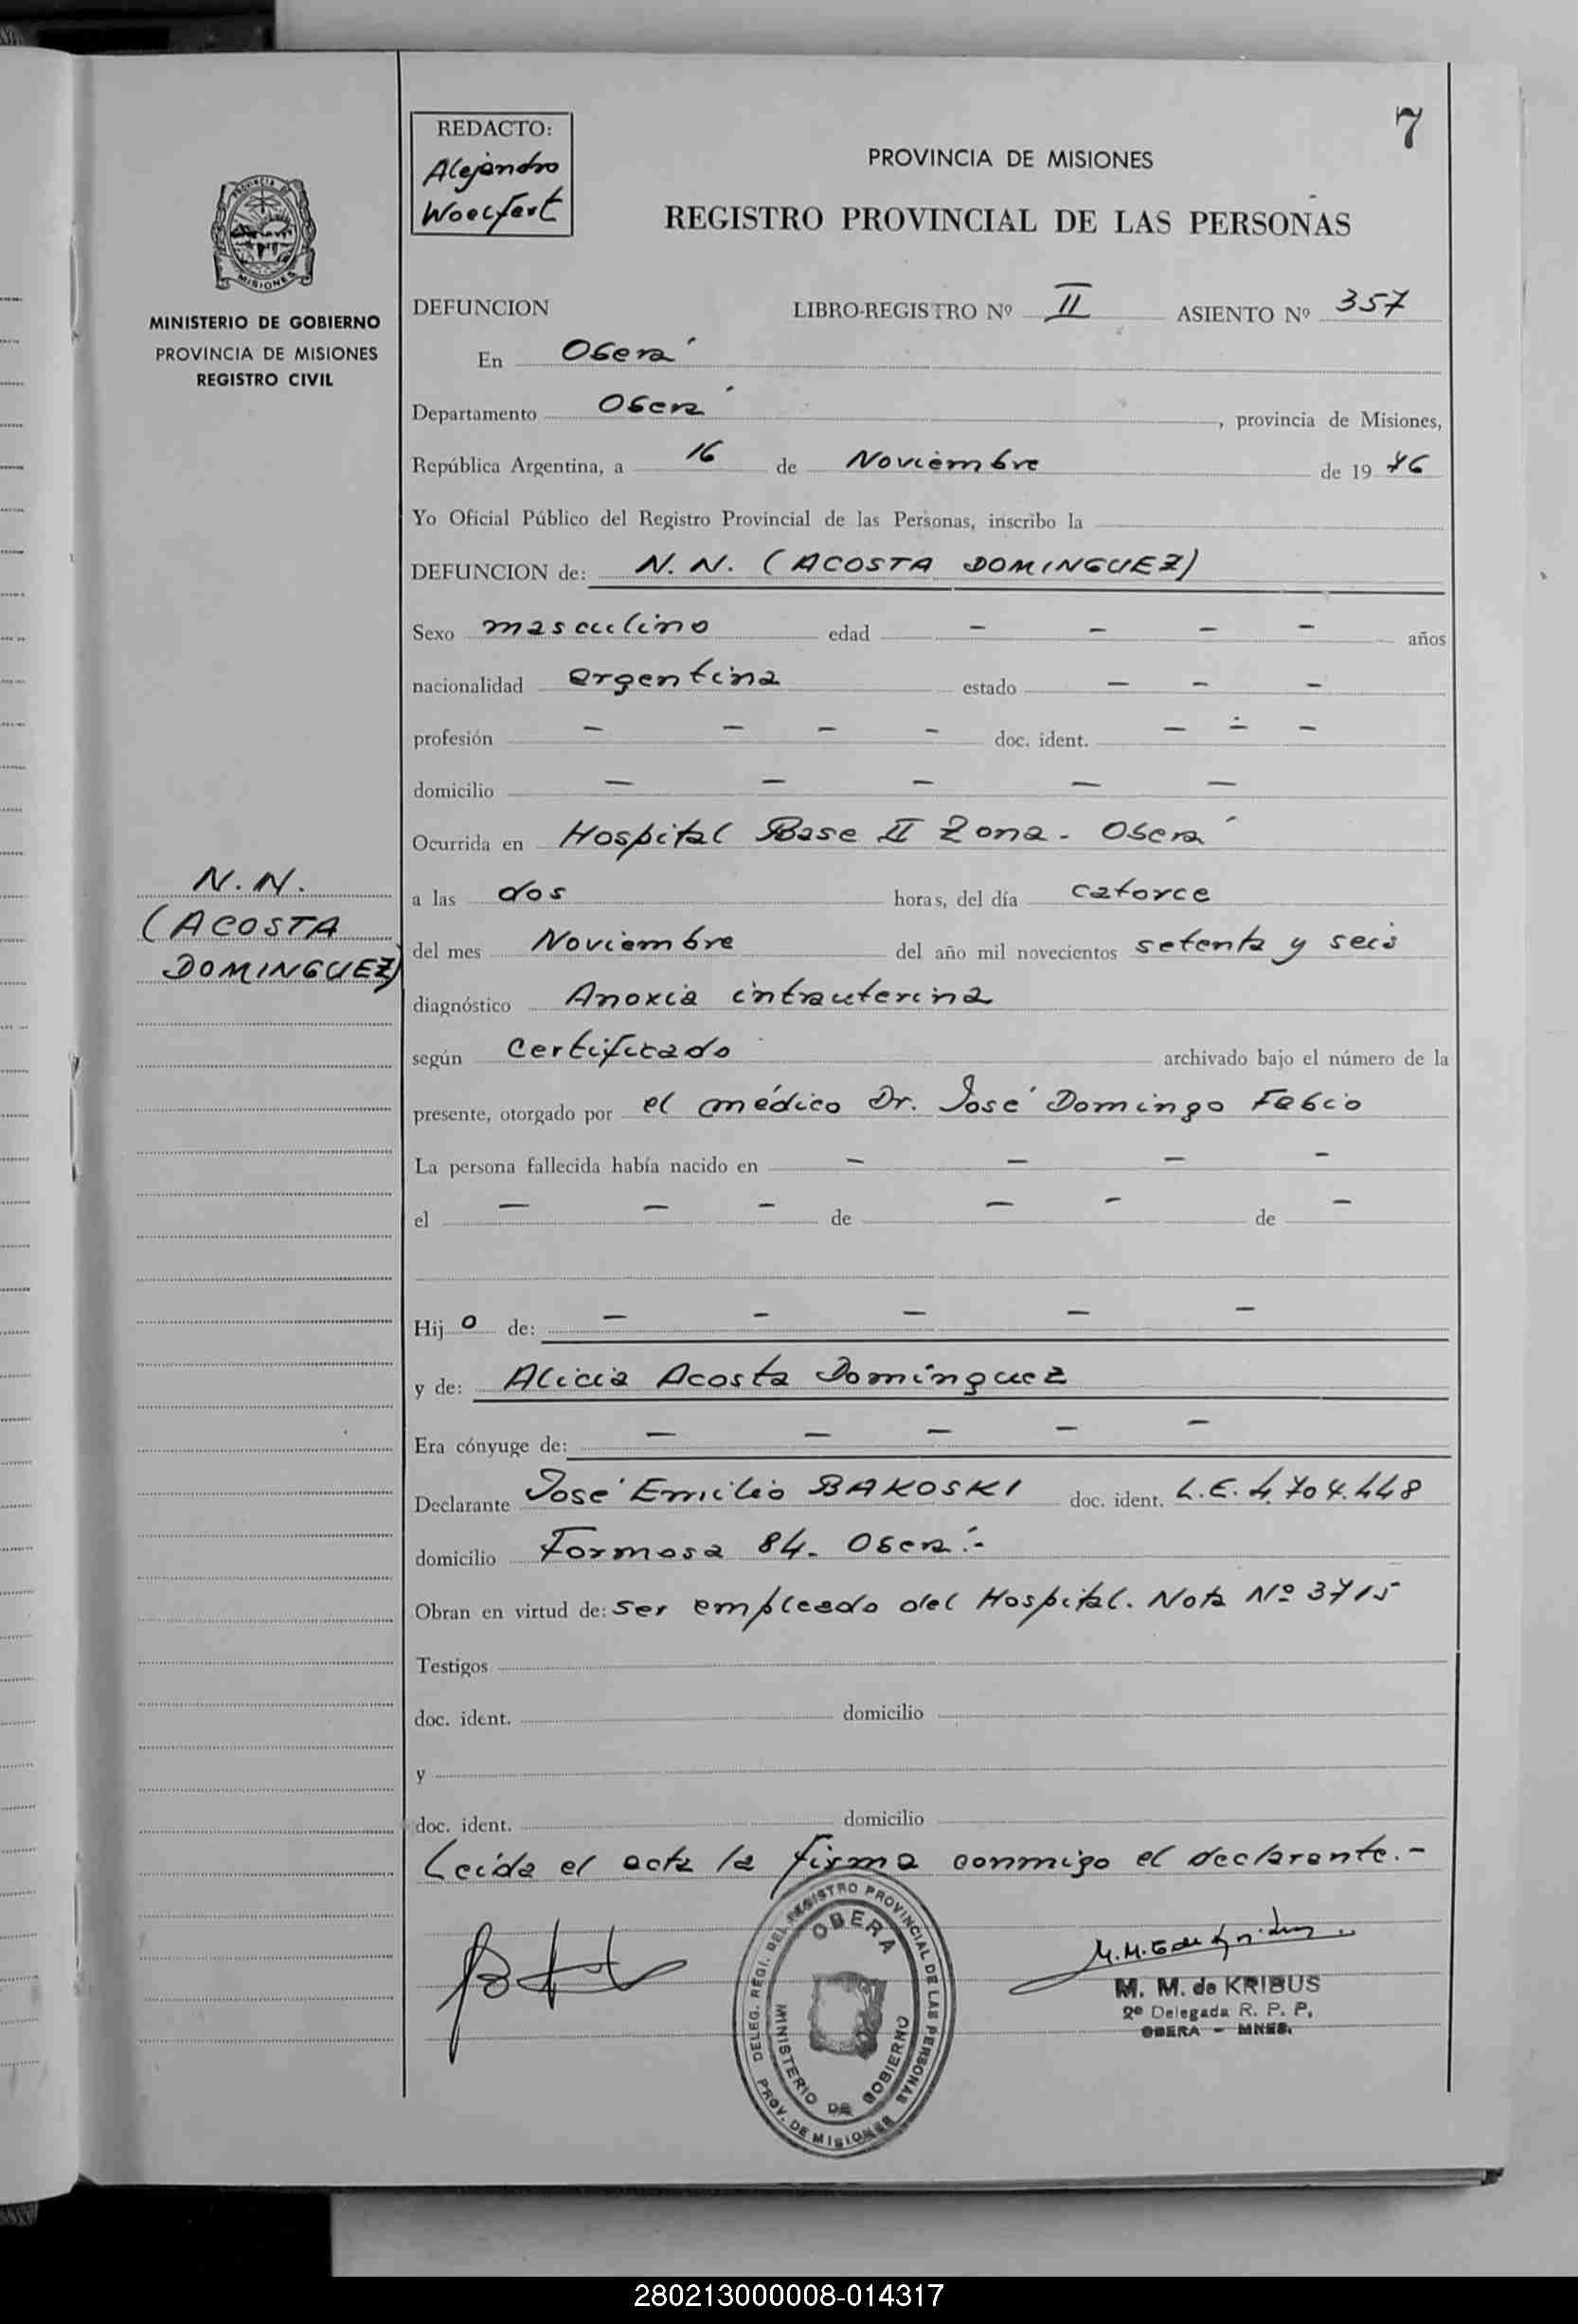 7
REDACTO:
Alejandro
Woelfert
PROVINCIA DE MISIONES
REGISTRO PROVINCIAL DE LAS PERSONAS
PROVINCIA DE
MISIONES
MINISTERIO DE GOBIERNO
PROVINCIA DE MISIONES
REGISTRO CIVIL
DEFUNCION LIBRO-REGISTRO Nº II ASIENTO Nº 357
En Oberá
Departamento Oberá, provincia de Misiones,
República Argentina, a 16 de Noviembre de 1976
Yo Oficial Público del Registro Provincial de las Personas, inscribo la
DEFUNCION de: N. N. (ACOSTA DOMINGUEZ)
Sexo masculino edad - - - - años
nacionalidad argentina estado - - -
profesión - - - - doc. ident. - - -
domicilio - - - - -
Ocurrida en Hospital Base II Zona - Oberá
N. N.
(ACOSTA
DOMINGUEZ)
a las dos horas, del día catorce
del mes Noviembre del año mil novecientos setenta y seis
diagnóstico Anoxia intrauterina
según Certificado archivado bajo el número de la
presente, otorgado por el médico Dr. José Domingo Fabio
La persona fallecida había nacido en - - - -
el - - - de - - de -
Hijo de: - - - - -
y de: Alicia Acosta Dominguez
Era cónyuge de: - - - - -
Declarante José Emilio BAKOSKI doc. ident. L.E. 4.704.448
domicilio Formosa 84. Oberá.-
Obran en virtud de: ser empleado del Hospital. Nota Nº 3715
Testigos
doc. ident. domicilio
y
doc. ident. domicilio
Leída el acta la firma conmigo el declarante.-
DELEG. REGI. DEL REGISTRO PROVINCIAL DE LAS PERSONAS
PROV. DE MISIONES
OBERA
MINISTERIO DE GOBIERNO
M. M. de KRIBUS
2º Delegada R. P. P.
OBERA - MNES.
280213000008-014317